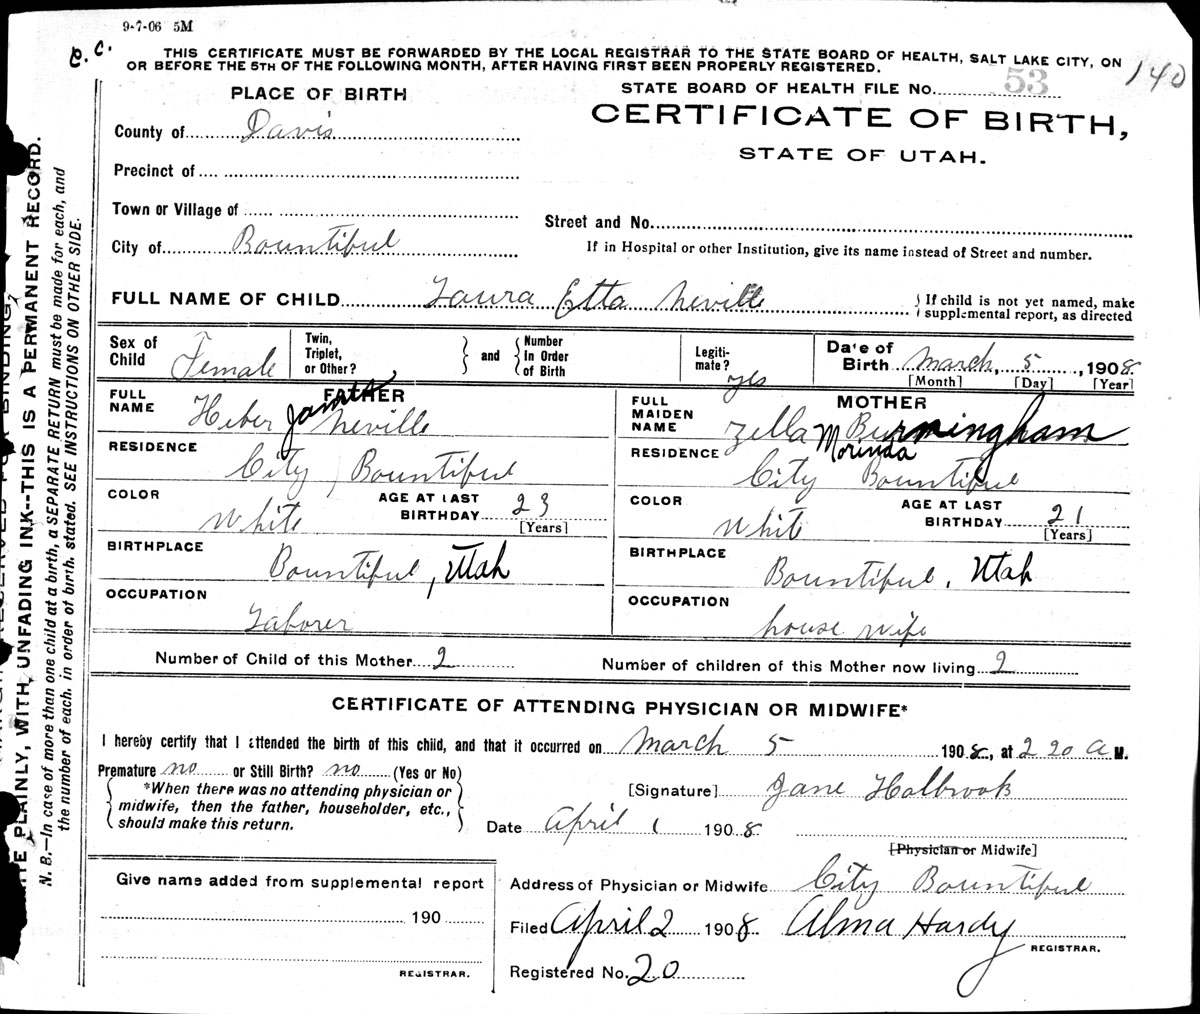 9-7-06 5M
C.C.
THIS CERTIFICATE MUST BE FORWARDED BY THE LOCAL REGISTRAR TO THE STATE BOARD OF HEALTH, SALT LAKE CITY, ON
OR BEFORE THE 5TH OF THE FOLLOWING MONTH, AFTER HAVING FIRST BEEN PROPERLY REGISTERED.
140
PLACE OF BIRTH
STATE BOARD OF HEALTH FILE NO. 53
CERTIFICATE OF BIRTH,
STATE OF UTAH.
County of Davis
Precinct of
Town or Village of
Street and No.
City of Bountiful
If in Hospital or other Institution, give its name instead of Street and number.
FULL NAME OF CHILD Laura Etta Neville
{ If child is not yet named, make
supplemental report, as directed
Sex of Child Female
Twin, Triplet, or Other? } and { Number In Order of Birth
Legiti-mate? yes
Date of Birth March, 5, 1908
[Month] [Day] [Year]
FATHER
FULL NAME Heber Neville
RESIDENCE City, Bountiful
COLOR White
AGE AT LAST BIRTHDAY 23
[Years]
BIRTHPLACE Bountiful, Utah
OCCUPATION Laborer
MOTHER
FULL MAIDEN NAME Zella Morinda Burmingham
RESIDENCE City Bountiful
COLOR White
AGE AT LAST BIRTHDAY 21
[Years]
BIRTHPLACE Bountiful, Utah
OCCUPATION house wife
Number of Child of this Mother 2
Number of children of this Mother now living 2
CERTIFICATE OF ATTENDING PHYSICIAN OR MIDWIFE*
I hereby certify that I attended the birth of this child, and that it occurred on March 5 1908, at 2 20 A M.
Premature no or Still Birth? no (Yes or No)
{ *When there was no attending physician or
midwife, then the father, householder, etc.,
should make this return. }
[Signature] Jane Holbrook
Date April 1 1908
[Physician or Midwife]
Give name added from supplemental report
190
REGISTRAR.
Address of Physician or Midwife City Bountiful
Filed April 2 1908 Alma Hardy
REGISTRAR.
Registered No. 20
PLAINLY, WITH UNFADING INK--THIS IS A PERMANENT RECORD.
N. B.—In case of more than one child at a birth, a SEPARATE RETURN must be made for each, and
the number of each, in order of birth, stated. SEE INSTRUCTIONS ON OTHER SIDE.